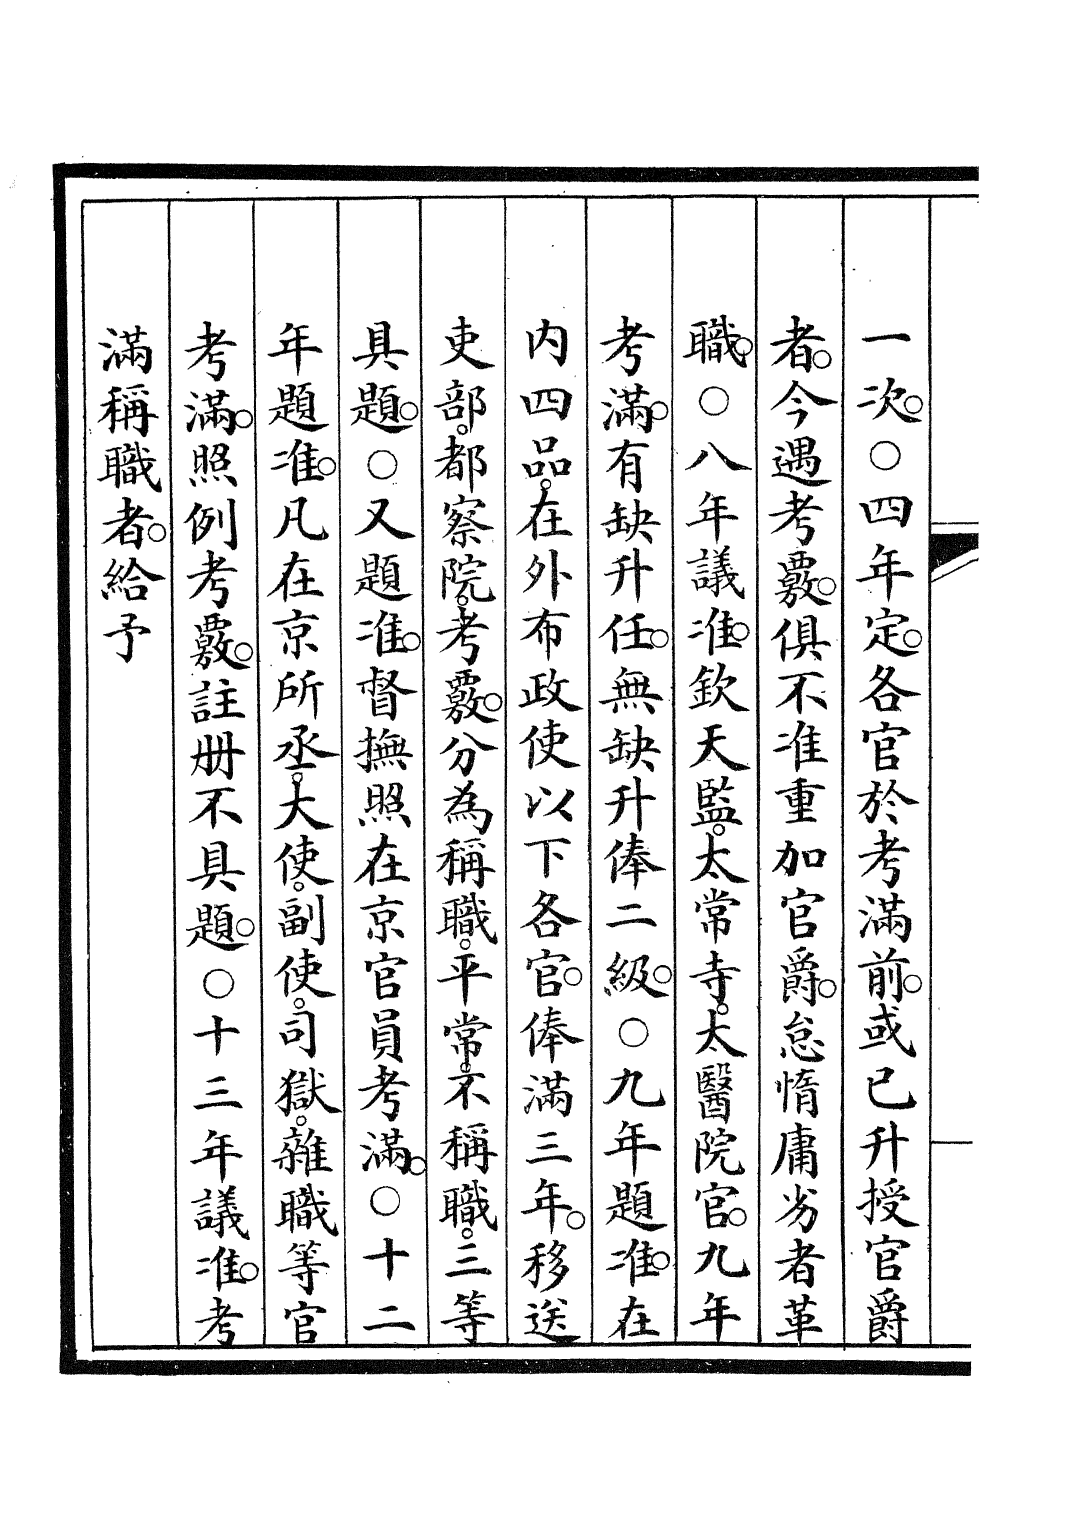 一次。○四年定。各官於考滿前。或已升授官爵
者。今遇考覈。俱不准重加官爵。怠惰庸劣者革
職。○八年議准。欽天監。太常寺。太醫院官。九年
考滿。有缺升任。無缺升俸二級。○九年題准。在
内四品。在外布政使以下各官。俸滿三年。移送
吏部。都察院。考覈。分為稱職。平常。不稱職。三等
具題。○又題准。督撫照在京官員考滿。○十二
年題准。凡在京所丞。大使。副使。司獄。雜職等官
考滿。照例考覈。註册不具題。○十三年議准。考
滿稱職者。給予